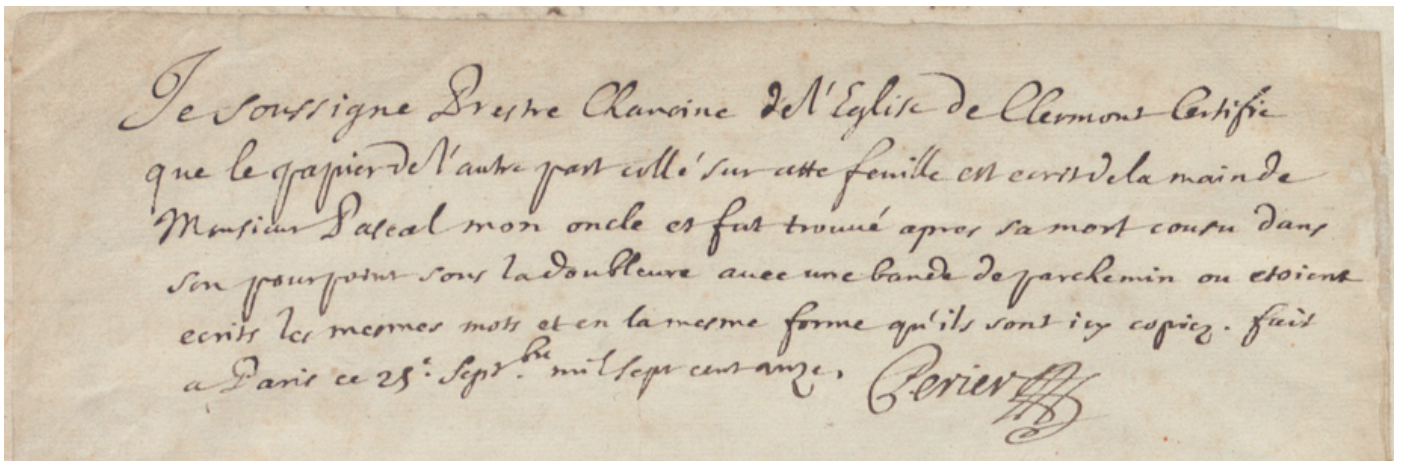 Je soussigne Prestre Chanoine de l'Eglise de Clermont Certifie
que le papier de l'autre part collé sur cette feuille est ecrit de la main de
Monsieur Pascal mon oncle et fut trouué apres sa mort cousu dans
son pourpoint sous la doubleure auec une bande de parchemin ou etoient
ecrits les mesmes mots et en la mesme forme qu'ils sont icy copiez. fait
a Paris ce 25e. Septbre. mil sept cent onze. Perier